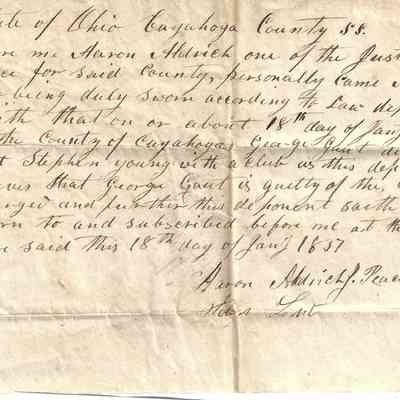 ate of Ohio Cuyahoga County SS.
re me Aaron Aldrich one of the Just
ce for said County, personally came
being duly sworn according to Law dep
ith that on or about 18th day of Jany
the County of Cuyahoga George Gaut di
t Stephen young with a club as this dep
eves that George Gaut is guilty of the
arged and further this deponent saith
orn to and subscribed before me at th
said this 18th day of Jany 1837
Aaron Aldrich J. Peace